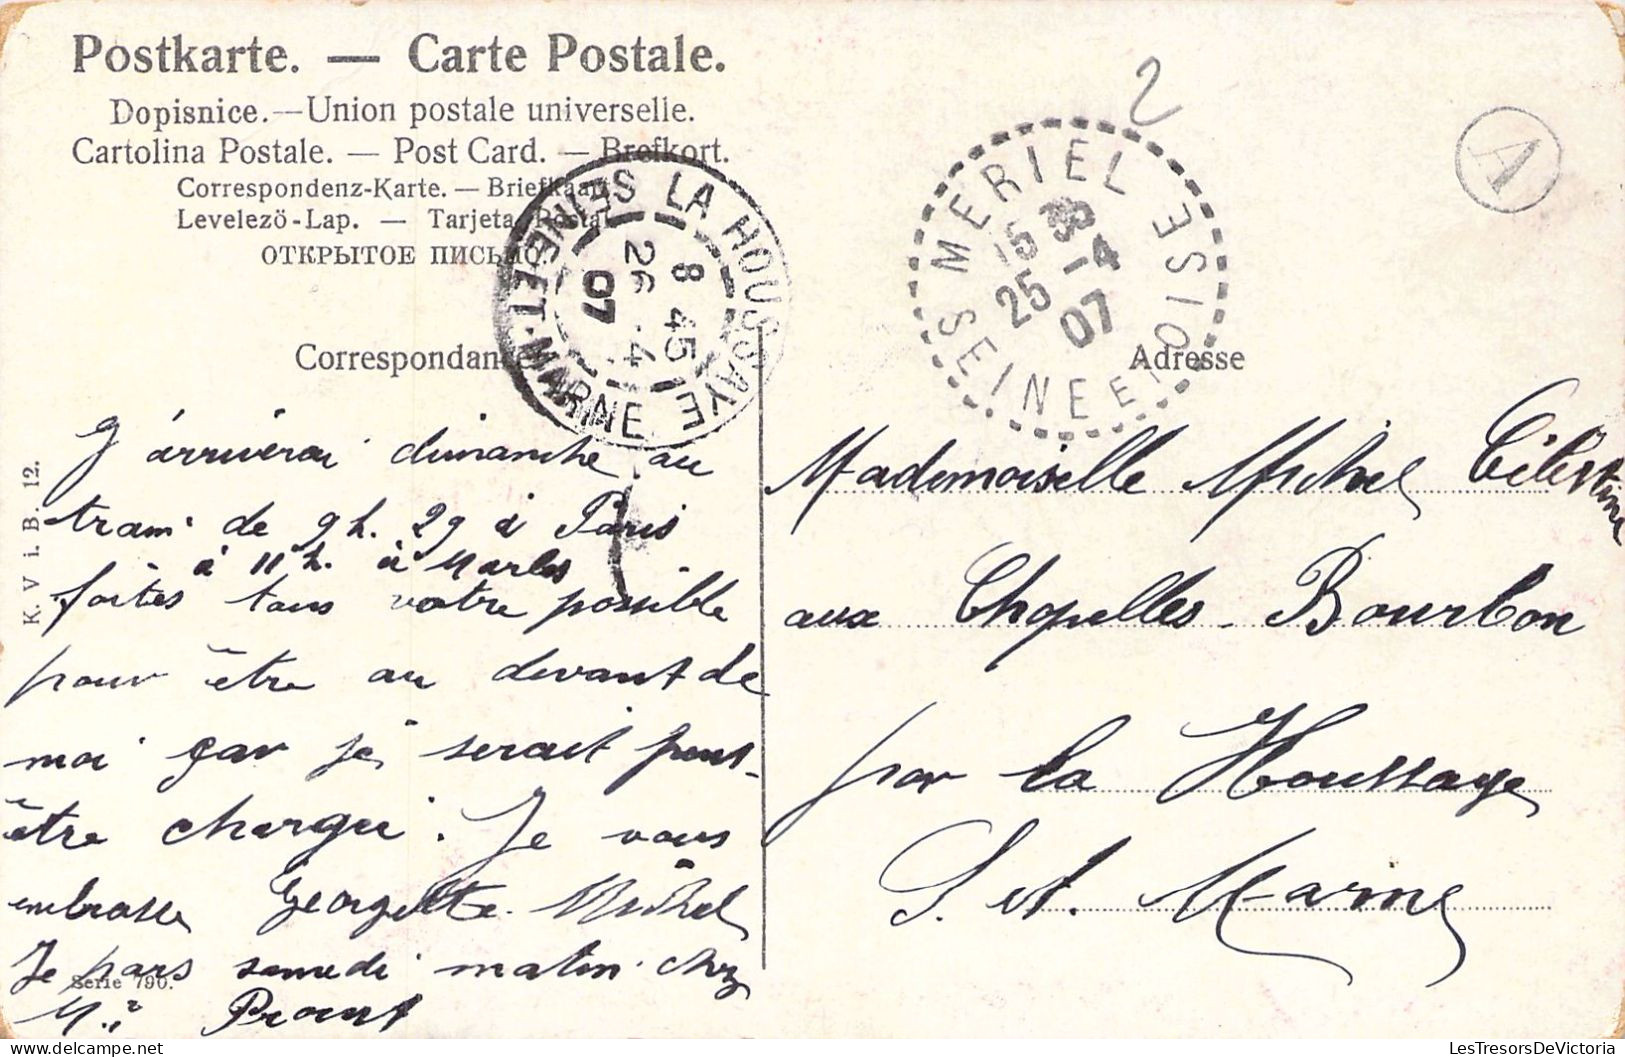 Postkarte. — Carte Postale.
Dopisnice.—Union postale universelle.
Cartolina Postale. — Post Card. — Brefkort.
Correspondenz-Karte. — Briefkaart
Levelező-Lap. — Tarjeta Postal
ОТКРЫТОЕ ПИСЬМО.
LA HOUSSAYE
SEINE-ET-MARNE
8 45
26 -4
07
2
MERIEL
SEINE ET OISE
15 30
25 -4
07
A
Correspondance
J'arriverai dimanche au
train de 9h. 29 à Paris
à 11h. à Marles
faites tous votre possible
pour être au devant de
moi car je serait peut-
être chargée. Je vous
embrasse Georgette Michel
Je pars samedi matin chez
Prout
K. V i. B. 12.
Serie 790.
Adresse
Mademoiselle Michel Célestine
aux Chapelles-Bourbon
par la Houssaye
S. et. Marne
LesTresorsDeVictoria